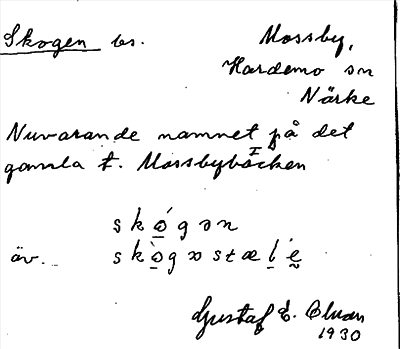 Skogen bs. Mossby,
Hardemo sn
Närke
Nuvarande namnet på det
gamla t. Mossbybacken
skógən
äv. skògəstæḷé
Gustaf E.
1930